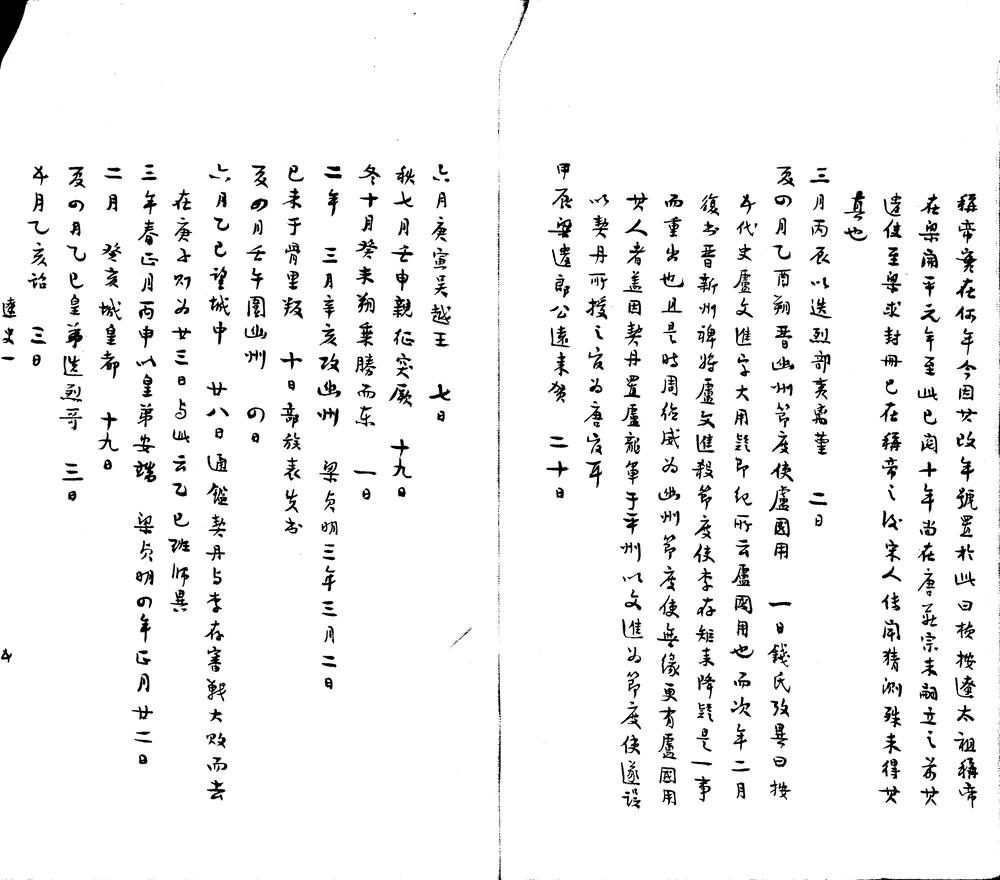 稱帝實在何年今因其改年號置於此曰核按遼太祖稱帝
在梁開平元年至此已閱十年尚在唐莊宗未嗣立之前其
遣使至梁求封冊已在稱帝之後宋人傳聞猜測殊未得其
真也
三月丙辰以迭烈部夷离堇 二日
夏四月乙酉朔晋幽州節度使盧國用 一日錢氏攷異曰按
五代史盧文進字大用疑即紀所云盧國用也而次年二月
復書晋新州裨將盧文進殺節度使李存矩來降疑是一事
而重出也且是時周德威为幽州節度使無緣更有盧國用
其人者盖因契丹置盧龍軍于平州以文進为節度使遂誤
以契丹所授之官为唐官耳
甲辰梁遣郎公遠来贺 二十日
六月庚寅吴越王 七日
秋七月壬申親征突厥 十九日
冬十月癸未朔乗勝而东 一日
二年 三月辛亥攻幽州 梁贞明三年三月二日
已未于骨里叛 十日部族表失书
夏四月壬午圍幽州 四日
六月乙巳望城中 廿八日通鑑契丹与李存審戰大敗而去
在庚子则为廿三日与此云乙巳班师異
三年春正月丙申以皇弟安端 梁贞明四年正月廿二日
二月 癸亥城皇都 十九日
夏四月乙巳皇弟迭烈哥 三日
五月乙亥詔 三日
遼史一 五